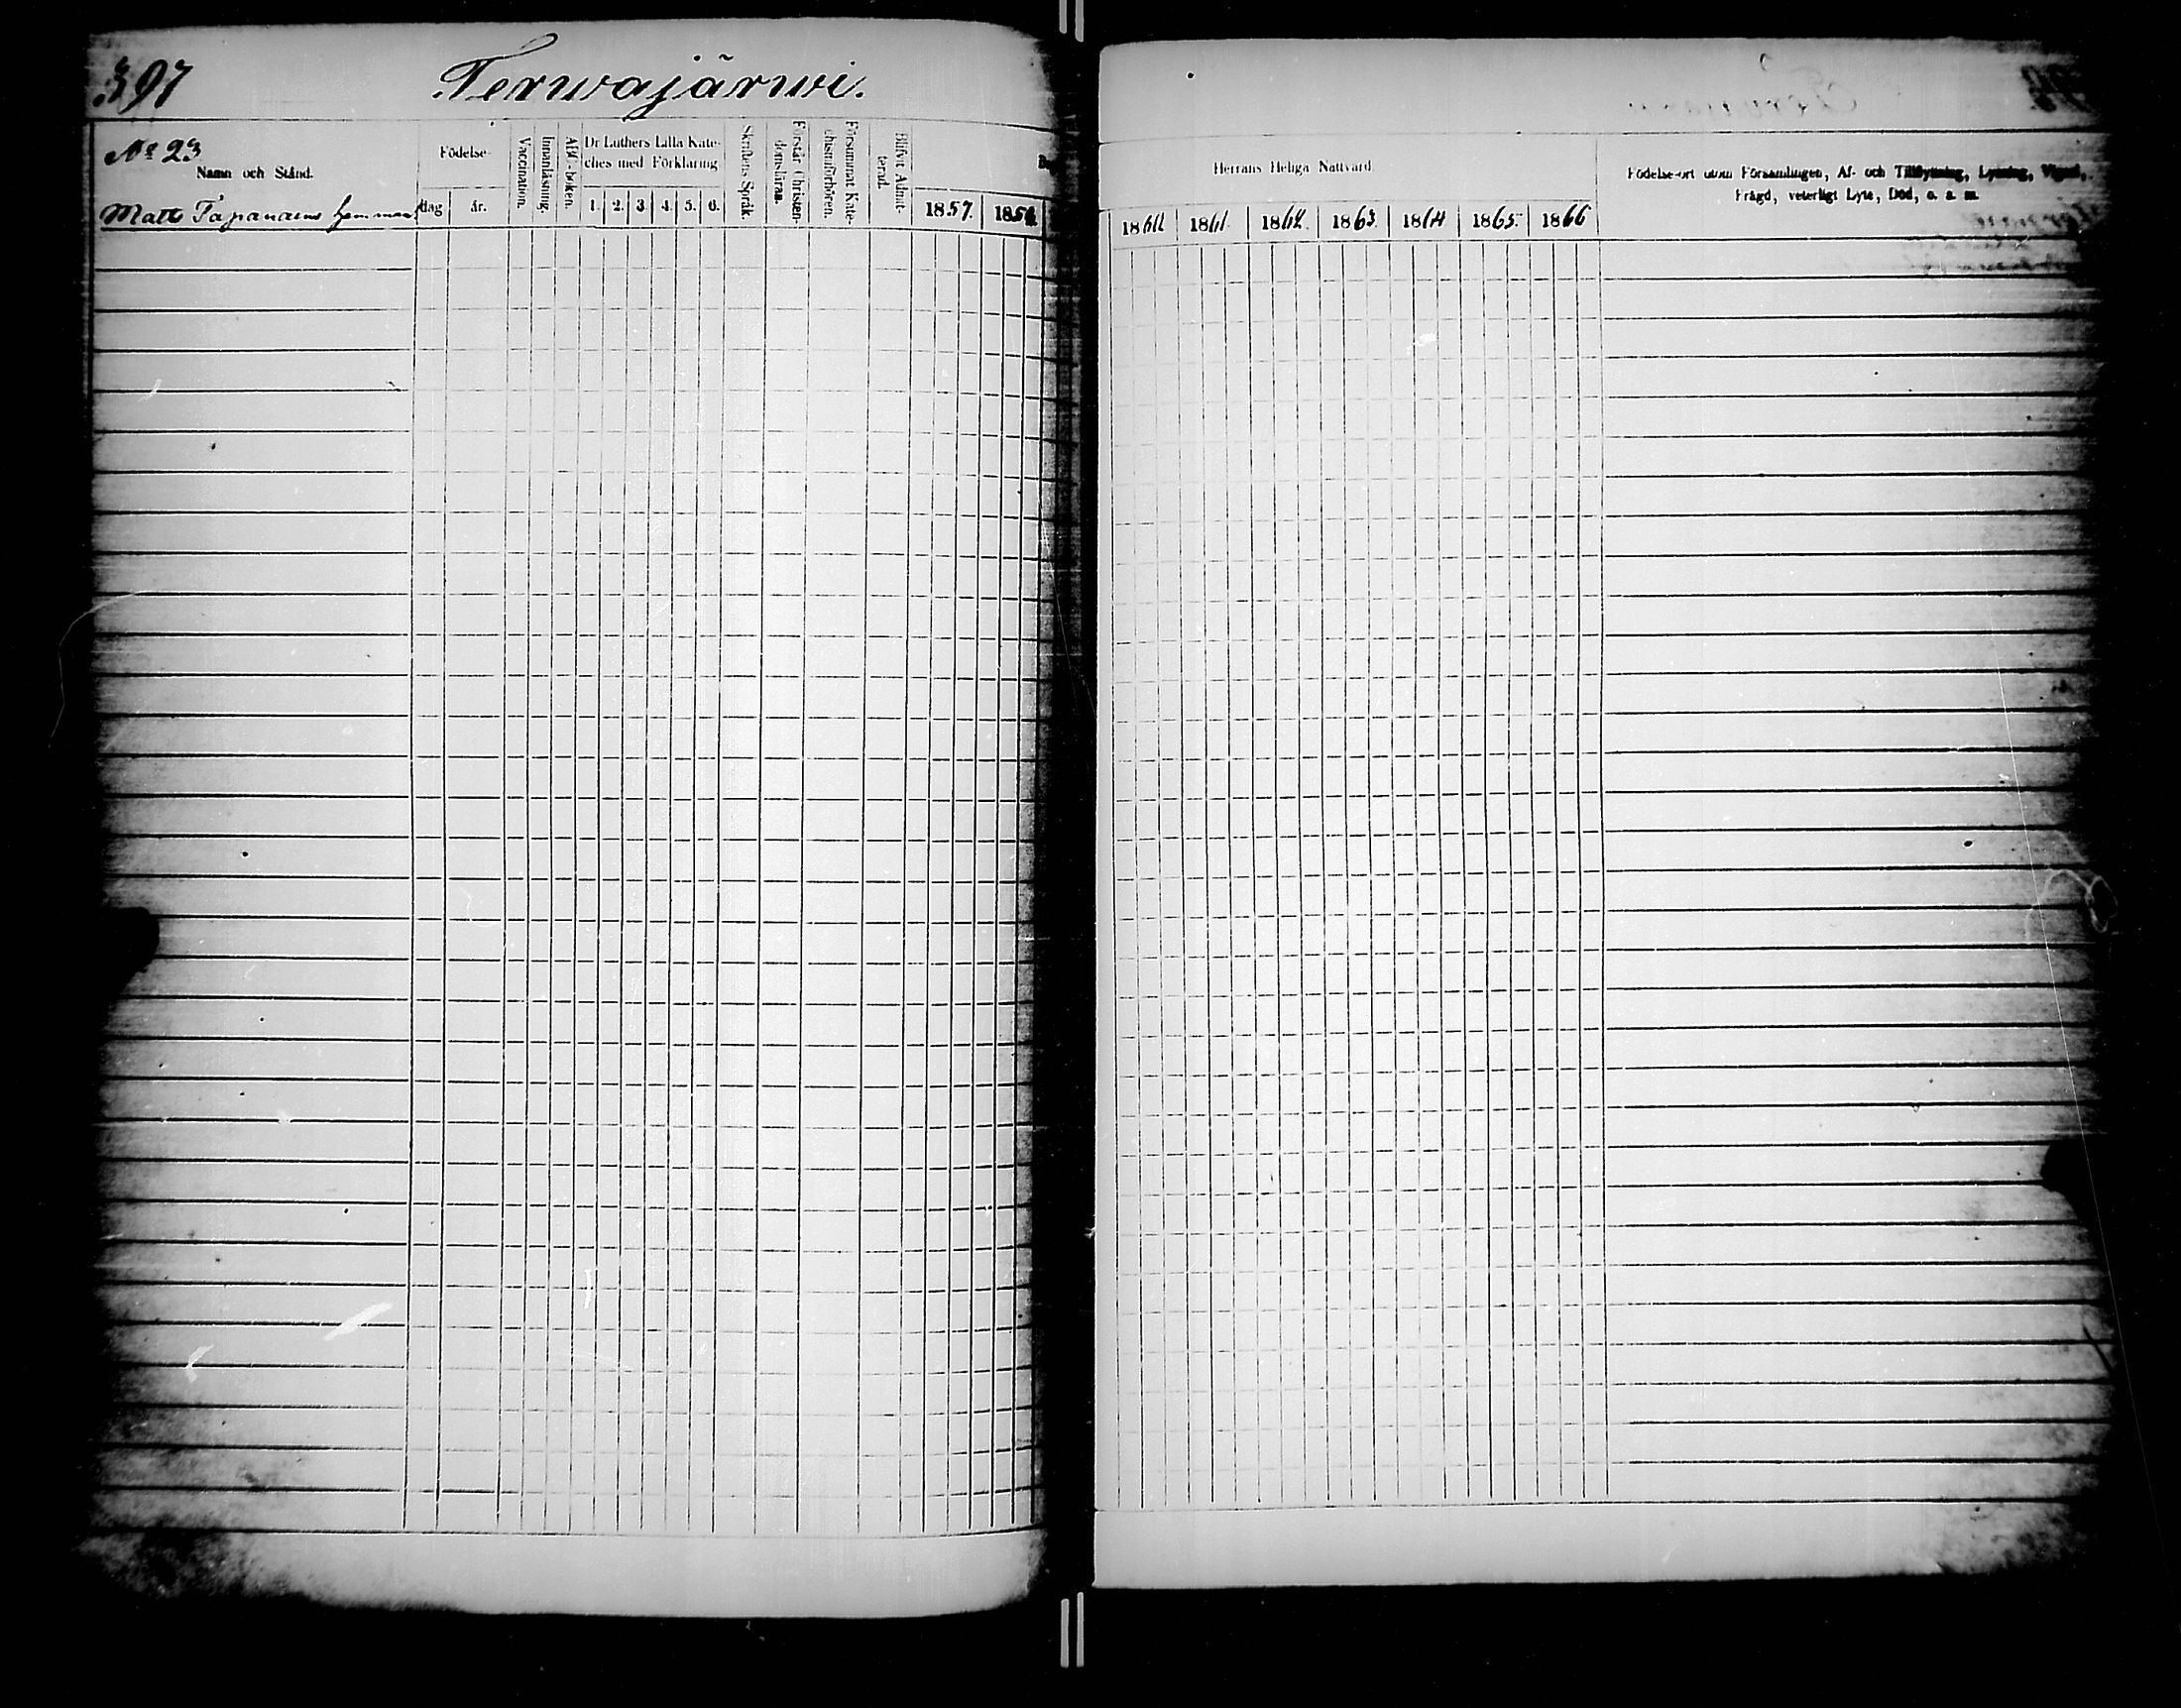 397
Terwajärwi.
No 23
Namn och Stånd.
Födelse-
dag
år.
Vaccination.
Innanläsning.
ABC-boken.
Dr Luthers Lilla Kate-
ches med Förklaring
1. 2. 3. 4. 5. 6.
Skriftens Språk.
Förstår Christen-
domsläran.
Försummat Kate-
chismiförhören.
Blifvit Admit-
terad.
1857. 185
Matts Tapanains hemman
Herrans Heliga Nattvard.
1860 1861. 1862. 1863. 1864 1865. 1866
Födelse-ort utom Församlingen, Af- och Tillflyttning, Lysning, Vigsel,
Frägd, veterligt Lyte, Död, o. s. m.